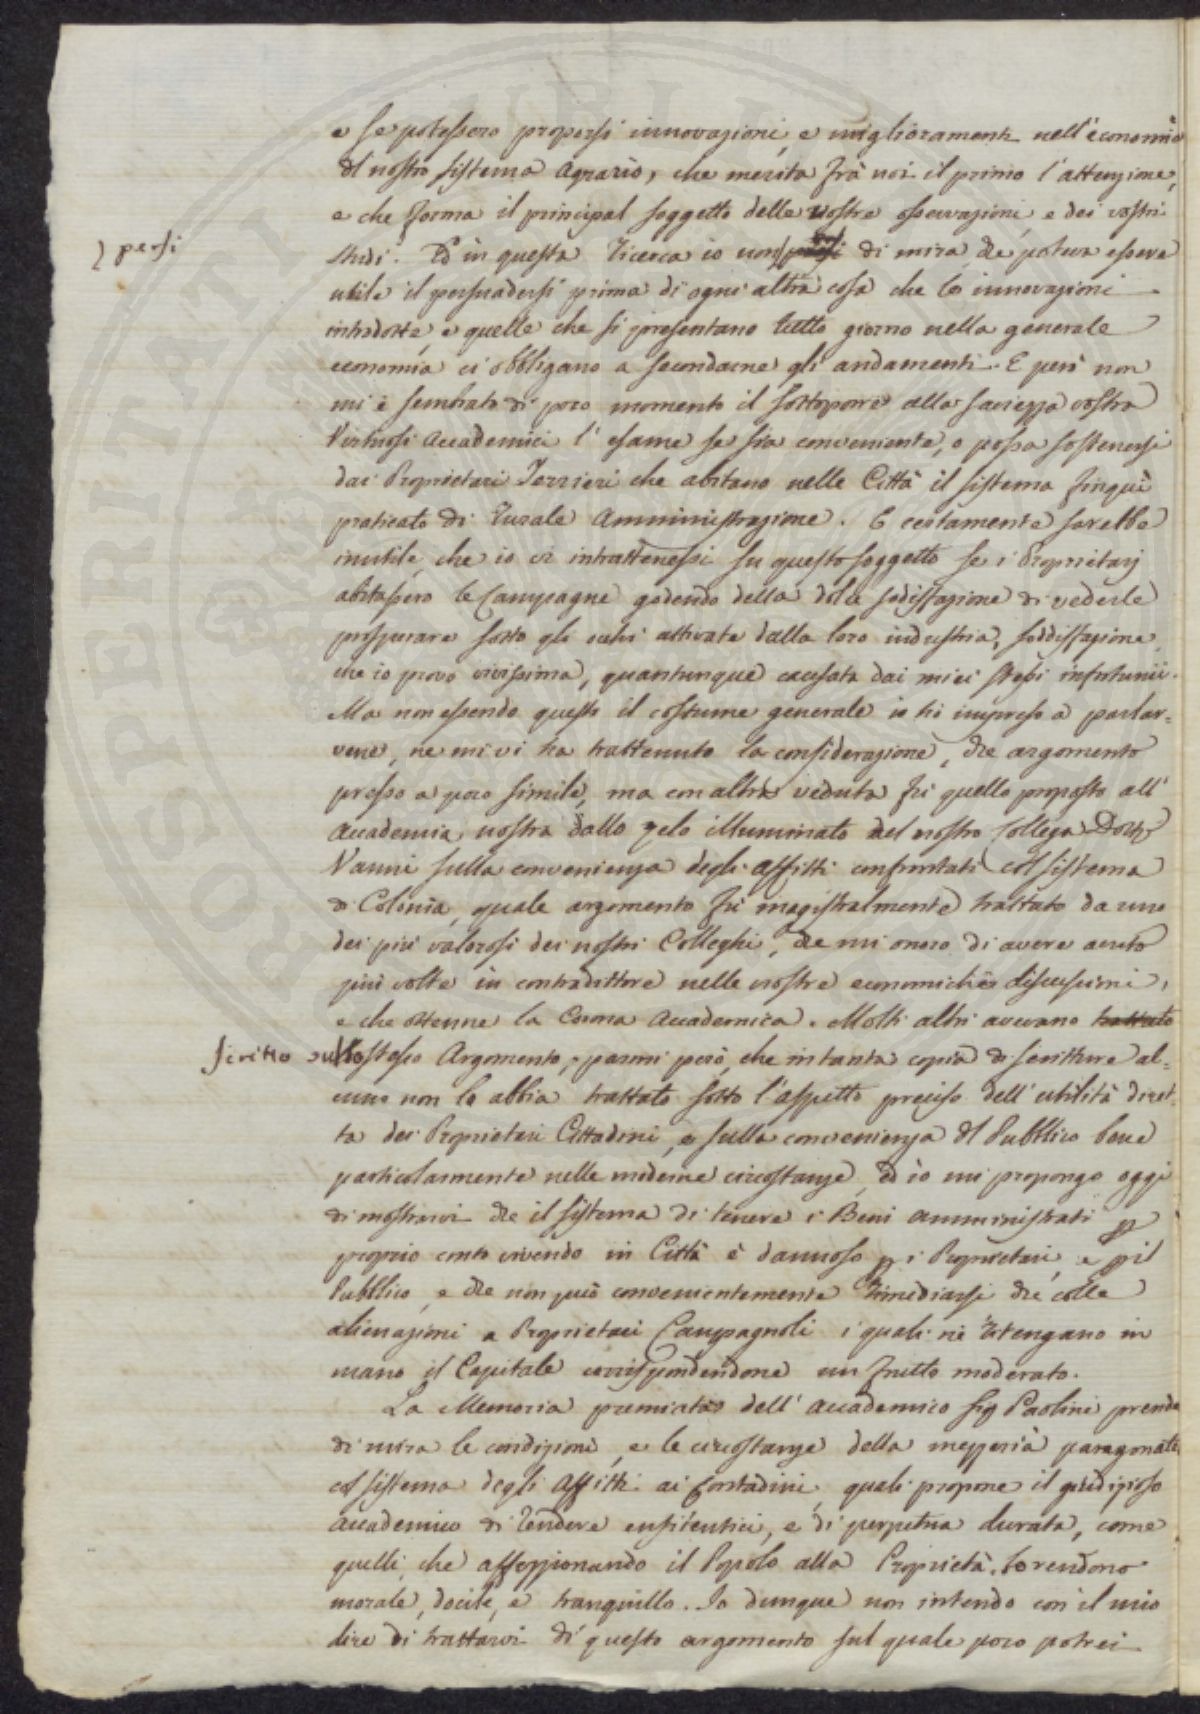 e se potessero proporsi innovazioni, e miglioramenti nell'economia
del nostro sistema Agrario, che merita frà noi il primo l'attenzione,
e che forma il principal soggetto delle nostre osservazioni, e dei vostri
studi. Ed in questa ricerca io non persi di mira, che poteva essere
persi
utile il persuadersi prima di ogni altra cosa che le innovazioni
introdotte, e quelle che si presentano tutto giorno nella generale
economia ci obbligano a secondarne gli andamenti. E però non
mi è sembrato di poco momento il sottoporre alla saviezza vostra
Virtuosi Accademici l'esame se sia conveniente, o possa sostenersi
dai Proprietari Terrieri che abitano nelle Città il sistema finquì
praticato di rurale Amministrazione. E certamente sarebbe
inutile, che io vi intrattenessi su questo soggetto se i Proprietarj
abitassero le Campagne godendo della dolce sodisfazione di vederle
prosperare sotto gli occhi attivate dalla loro industria, soddisfazione
che io provo vivissima, quantunque causata dai miei stessi infortunii.
Ma non essendo questo il costume generale io hò impreso a parlar=
vene, ne mi vi ha trattenuto la considerazione, che argomento
presso a poco simile, ma con altra veduta fù quello proposto all'
Accademia nostra dallo zelo illuminato del nostro Collega Dott.
Vanni sulla convenienza degli affitti confrontati col sistema
di Colonìa, quale argomento fù magistralmente trattato da uno
dei più valorosi dei nostri Colleghi, che mi onoro di avere avuto
più volte in contradittore nelle nostre economiche discussioni,
e che ottenne la Corona Accademica. Molti altri avevano trattato
scritto sullo stesso Argomento, parmi però, che in tanta copia di scritture al=
cuno non lo abbia trattato sotto l'aspetto preciso dell'utilità diret=
ta dei Proprietari Cittadini, e sulla convenienza del Pubblico bene
particolarmente nelle moderne circostanze, ed io mi propongo oggi
di mostrarvi che il sistema di tenere i Beni amministrati p
proprio conto vivendo in Città è dannoso p i Proprietari, e p il
Pubblico, e che non può convenientemente rimediarsi che colle
alienazioni a Proprietari Campagnoli i quali ne ritengano in
mano il Capitale corrispondendone un frutto moderato.
La Memoria premiata dell'Accademico Sig Paolini prende
di mira le condizioni, e le circostanze della mezzeria paragonate
col sistema degli Affitti ai Contadini, quali propone il giudizioso
Accademico di rendere enfiteutici, e di perpetua durata, come
quelli, che affezionando il Popolo alla Proprietà, lo rendono
morale, docile, e tranquillo. Io dunque non intendo con il mio
dire di trattarvi di questo argomento sul quale poco potrei